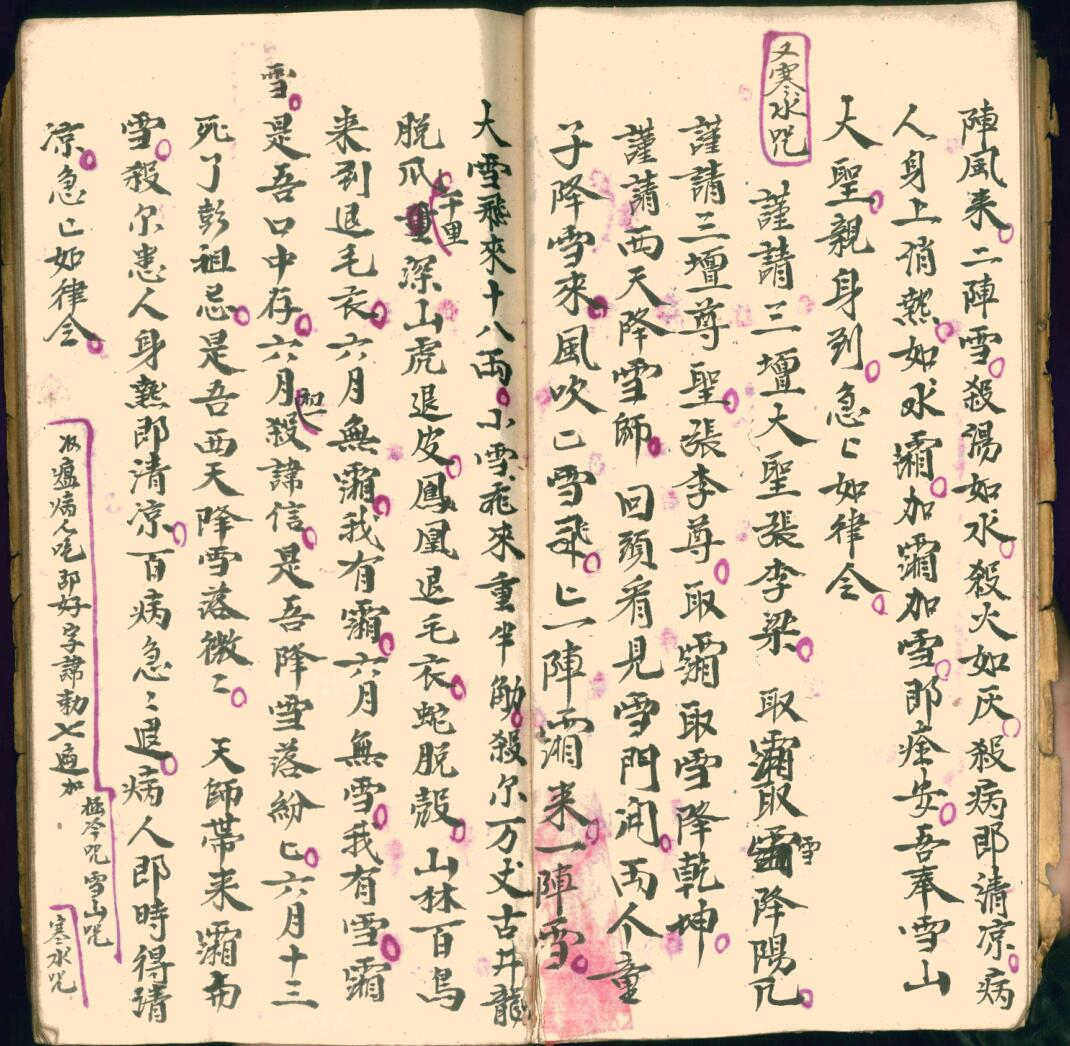 陣風来。二陣雪。殺湯如水。殺火如灰。殺病即清凉。病
人身上消熱。如氷霜。加霜加雪。即痊安。吾奉雪山
大聖親身到。急〻如律令。
又寒氷咒
謹請三壇大聖張李梁。取霜取雪降陽凡。
謹請三壇尊聖。張李尊。取霜取雪降乾坤。
謹請西天降雪師。回頭看見雪門開。両个童
子降雪来。風吹〻雪飛。〻一陣霜来。一陣雪。
大雪飛來十八両。小雪飛来重半觔。殺尔万丈古井龍
脱爪千里深山虎退皮。鳳凰退毛衣。蛇脱殼。山林百鳥
来到退毛衣。六月無霜。我有霜。六月無雪。我有雪。霜
雪。是吾口中存。六月殺諱信。是吾降雪落紛〻。六月十三
死了彭祖忌。是吾西天降雪落微〻。天師帯来霜布
雪。殺尔患人身熱即清凉。百病急〻退。病人即時得清
凉。急〻如律令。
瘟病人吃即好字諱勅七遍加
冷咒雪山咒
寒氷咒